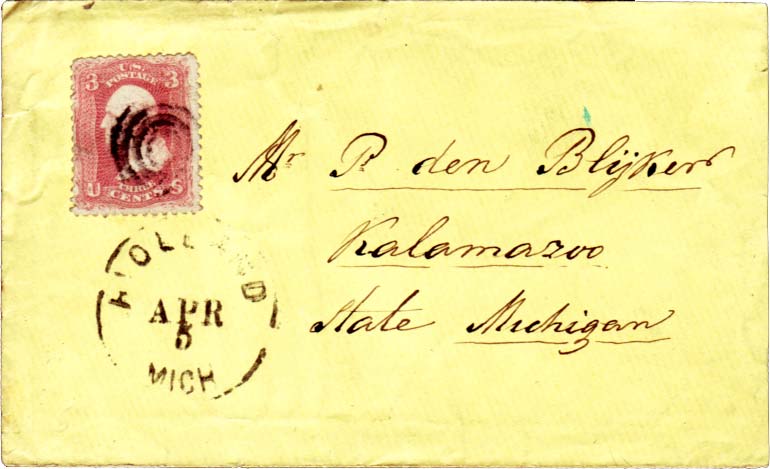 U.S.
POSTAGE
3 3
U S
THREE
CENTS
HOLLAND
APR
5
MICH
Mr P. den Blijker
Kalamazoo
State Michigan